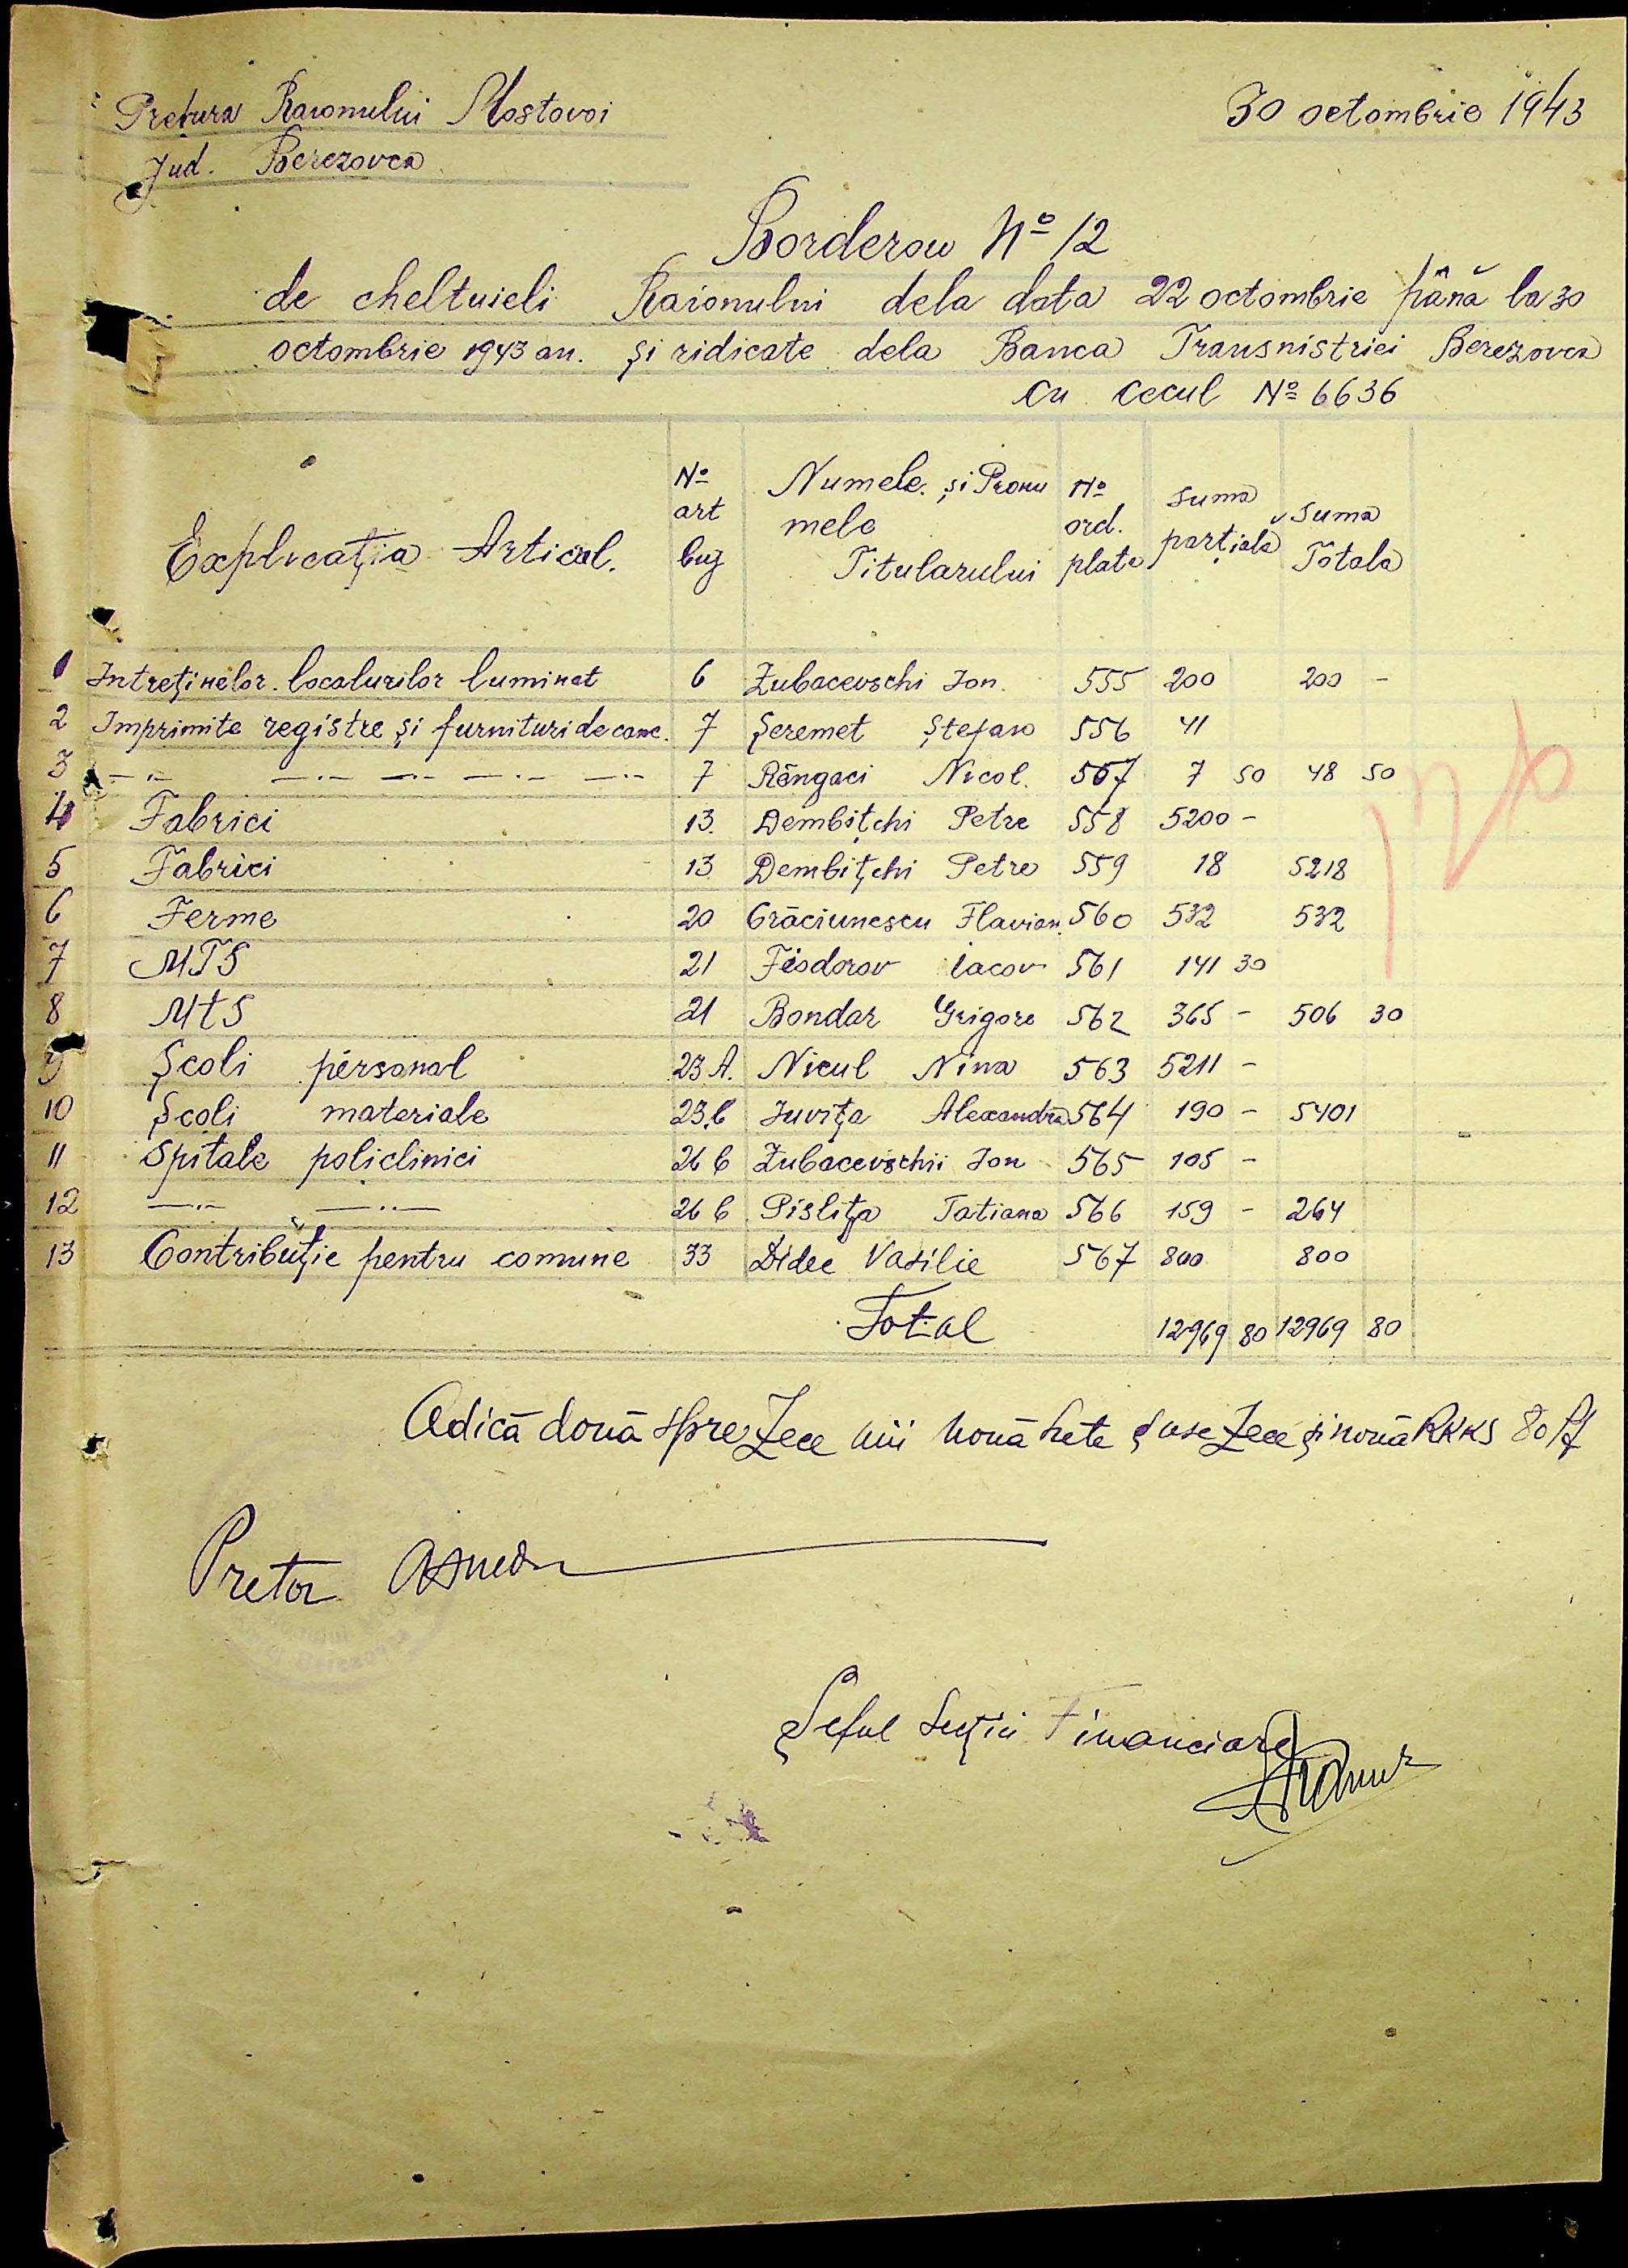 Pretura Raionului Mostovoi 30 octombrie 1943
Jud. Berezovca
Borderou Nº 12
de cheltuieli Raionului dela data 22 octombrie până la 30
octombrie 1943 an. și ridicate dela Banca Transnistriei Berezovca
cu cecul Nº 6636
Explicația Articol. Nº art bug Numele și Pronumele Titularului Nº ord. plata suma parțială suma Totala
1 Intreținelor localurilor luminat 6 Zubacevschi Ion. 555 200 200 -
2 Imprimite registre și furnituri de canc. 7 Șeremet Ștefan 556 41
3 -"- -"- -"- -"- -"- 7 Răngaci Nicol. 557 7 50 48 50
4 Fabrici 13 Dembițchi Petre 558 5200 -
5 Fabrici 13 Dembițchi Petre 559 18 5218
6 Ferme 20 Crăciunescu Flavian 560 532 532
7 MTS 21 Feodorov Iacov 561 141 30
8 MTS 21 Bondar Grigore 562 365 - 506 30
9 Școli personal 23 A. Nicul Nina 563 5211 -
10 Școli materiale 23 b Juvița Alexandra 564 190 - 5401
11 Spitale policlinici 26 b Zubacevschii Ion 565 105 -
12 -"- -"- 26 b Pislița Tatiana 566 159 - 264
13 Contribuție pentru comune 33 Didec Vasilie 567 800 800
Total 12969 80 12969 80
Adică două spre zece mii nouă sute șase zece și nouă RKKS 80 pf
Pretor
Șeful Secției Financiare